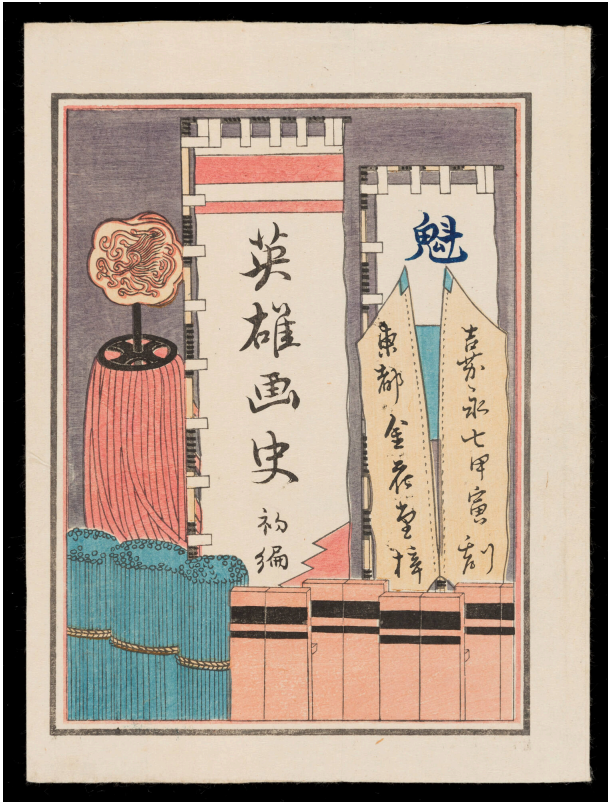 魁
嘉永七甲寅刻
東都金花堂梓
英雄画史
初編